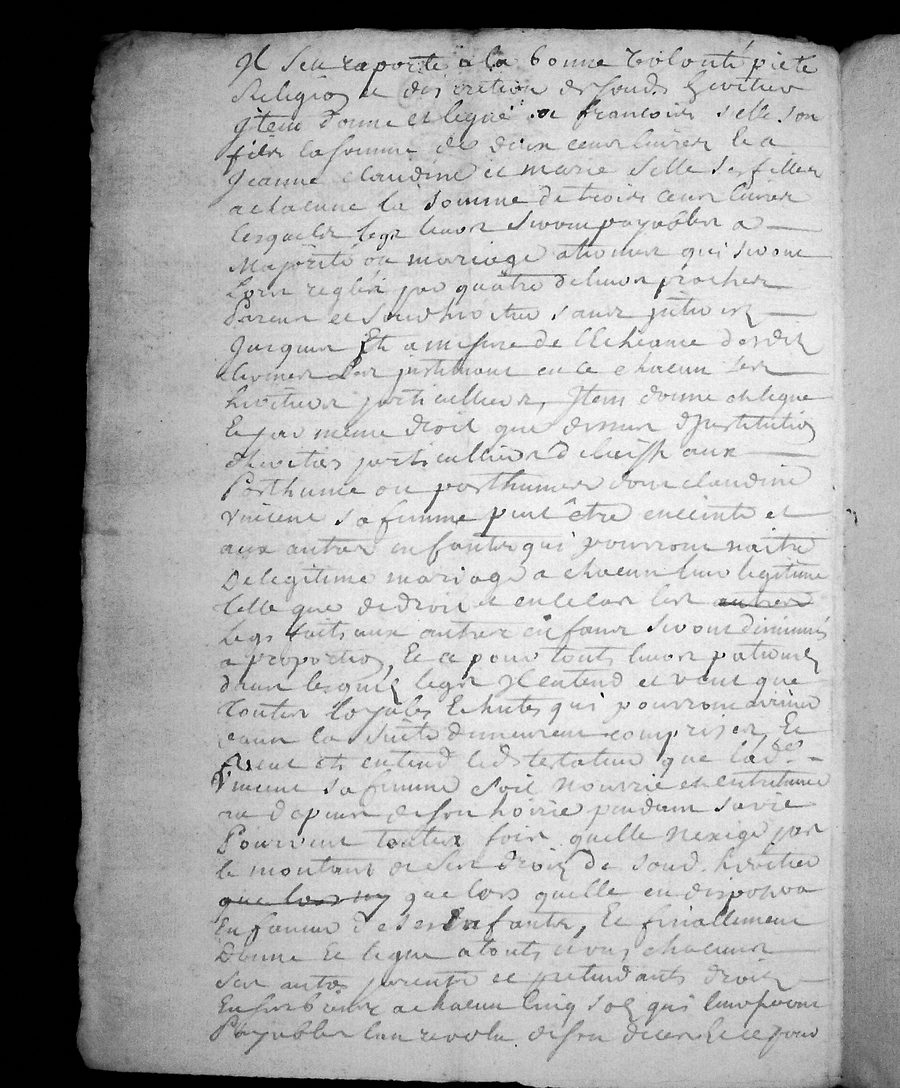 Il sen raporte a la bonne volonté piete
Religion et discretion de sond. heritier
Item donne et legue a francois selle son
fils la somme de deux cens livres et a
Jeanne claudine et marie selle ses filles
a chacune la somme de trois cens livres
lesquels legs leurs seront payables a
Majorité ou mariage a termes qui seront
Lors reglés par quatre de leurs proches
Parens et sond heritier sans interest
Jusques Et a mesure de l'Echeance desdits
termes Les instituant en ce chacun ses
heritiers particulliers, Item donne et legue
Et par meme droit que dessus d'Institution
d'heritiers particulliers delaisse aux
Posthume ou posthumes dont claudine
vincent sa femme peut être enceinte et
aux autres enfants qui pourront naitre
De legitime mariage a chacun leur legitime
telle que de droit et en ce cas les autres
Legs faits aux autres enfans seront diminués
a proportion, Et ce pour touts leurs
dans lesquels legs Il entend et veut que
toutes loyales Echutes qui pourront arriver
dans la suite demeurent comprises, Et
Veut et entend led. testateur que lad.e
Vincent sa femme soit nourrie et entretenue
de son hoirie pendant sa vie
Pourveu toutes fois quelle nexige pas
le montant de ses droits de sond. heritier
que lors que lors quelle en disposera
En faveur de ses Enfants, Et finallement
Donne Et legue a touts et chacuns
Ses autres parents et pretendants droit
En ses biens a chacun cinq sols qui leur seront
Payables l'an revolu de son deces Et ce pour